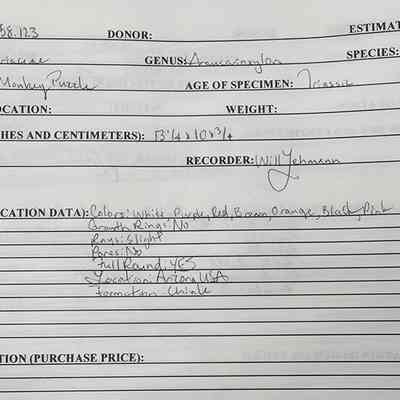 58.123 DONOR: ESTIMAT
GENUS: Araucarioxylon SPECIES:
Monkey Puzzle AGE OF SPECIMEN: Triassic
OCATION: WEIGHT:
HES AND CENTIMETERS): 13 1/4 x 10 3/4
RECORDER: Will Lehmann
CATION DATA): Colors: White, Purple, Red, Brown, Orange, Black, Pink
Growth Rings: No
Rays: Slight
Pores: No
Full Round: YES
Location: Arizona USA
Formation: Chinle
TION (PURCHASE PRICE):